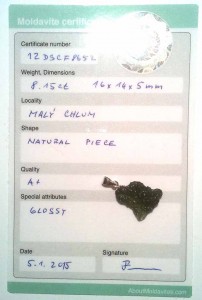 Moldavite certificate
Certificate number
Weight, Dimensions
8.15ct 16x14x5mm
Locality
MALÝ CHLUM
Shape
NATURAL PIECE
Quality
A+
Special attributes
GLOSSY
Date Signature
5.1.2015
AboutMoldavites.com